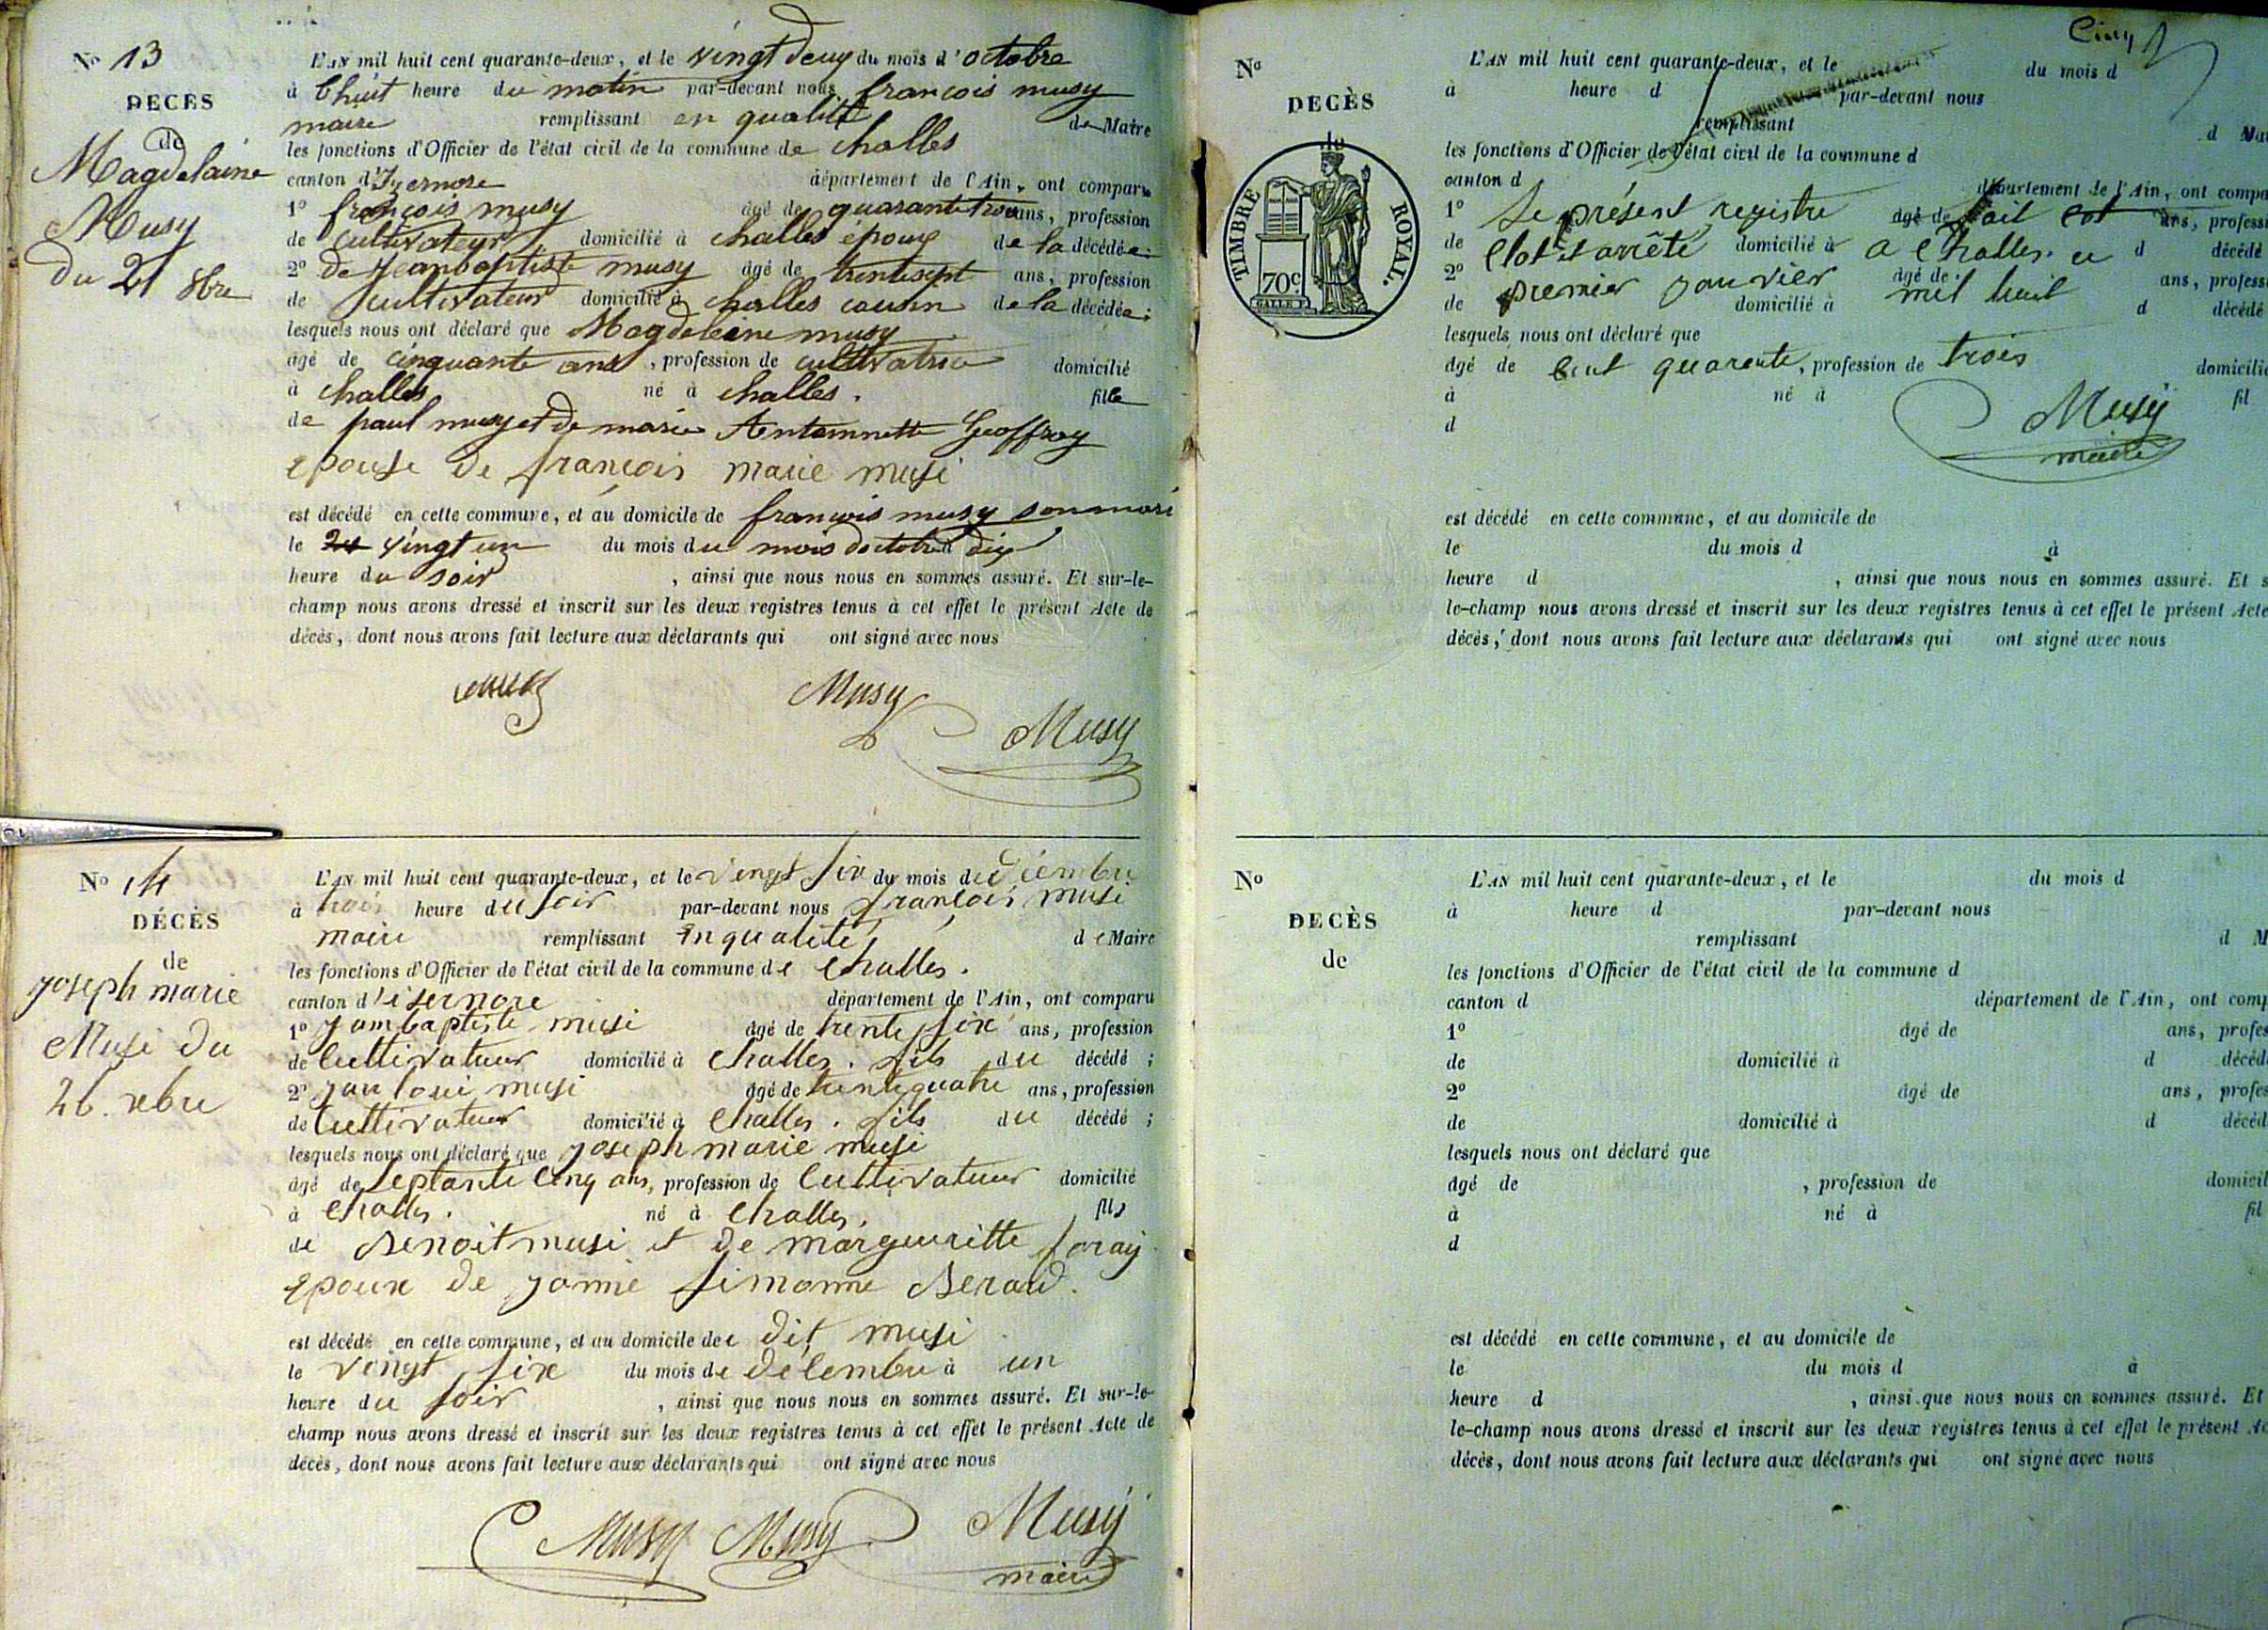 No 13
DECÈS
de
Magdelaine
Musy
du 21 8bre
L'AN mil huit cent quarante-deux, et le vingt deux du mois d'octobre
à huit heure du matin par-devant nous françois musy
maire remplissant en qualité de Maire
les fonctions d'Officier de l'état civil de la commune de challes
canton d'Izernore département de l'Ain, ont comparu
1o françois musy âgé de quarante trois ans, profession
de cultivateur domicilié à challes époux de la décédée;
2o De Jeanbaptiste musy âgé de trentesept ans, profession
de cultivateur domicilié à challes cousin de la décédée;
lesquels nous ont déclaré que Magdeleine musy
âgé de cinquante ans, profession de cultivatrice domicilié
à challes né à challes. fille
de paul musy et de marie Antoinnette Geoffray
epouse de françois marie musi
est décédé en cette commune, et au domicile de françois musy son mari
le vingt un du mois du mois doctobre à dix
heure du soir, ainsi que nous nous en sommes assuré. Et sur-le-
champ nous avons dressé et inscrit sur les deux registres tenus à cet effet le présent Acte de
décès, dont nous avons fait lecture aux déclarants qui ont signé avec nous
Musy
Musy
No 14
DÉCÈS
de
joseph marie
Musi du
26. xbre
L'AN mil huit cent quarante-deux, et le vingt six du mois de décembre
à trois heure du soir par-devant nous françois musi
maire remplissant en qualité de Maire
les fonctions d'Officier de l'état civil de la commune de challes.
canton d'isernore département de l'Ain, ont comparu
1o janbaptiste musi âgé de trente six ans, profession
de cultivateur domicilié à challes. fils du décédé;
2o jan loui musi âgé de trente quatre ans, profession
de cultivateur domicilié à challes. fils du décédé;
lesquels nous ont déclaré que joseph marie musi
âgé de septante cinq ans, profession de cultivateur domicilié
à challes. né à challes. fils
de Benoit musi et de margueritte foray
epoux de janne simonne Beraud.
est décédé en cette commune, et au domicile de dit musi
le vingt six du mois de décembre à un
heure du soir, ainsi que nous nous en sommes assuré. Et sur-le-
champ nous avons dressé et inscrit sur les deux registres tenus à cet effet le présent Acte de
décès, dont nous avons fait lecture aux déclarants qui ont signé avec nous
Musy Musy Musy
maire
Cinq
No
DECÈS
de
TIMBRE ROYAL.
70c
GALLE F.
L'AN mil huit cent quarante-deux, et le du mois d
à heure d par-devant nous
remplissant d Mai
les fonctions d'Officier de l'état civil de la commune d
canton d département de l'Ain, ont compa
1o Le présent registre âgé de fait est ans, profess
de clos et arrêté domicilié à a Challes. ce d décédé
2o premier janvier âgé de mil huit ans, profess
de domicilié à d décédé
lesquels nous ont déclaré que
âgé de cent quarante, profession de trois domicilié
à né à fil
d
Musy
maire
est décédé en cette commune, et au domicile de
le du mois d à
heure d, ainsi que nous nous en sommes assuré. Et s
le-champ nous avons dressé et inscrit sur les deux registres tenus à cet effet le présent Acte
décès, dont nous avons fait lecture aux déclarants qui ont signé avec nous
No
DECÈS
de
L'AN mil huit cent quarante-deux, et le du mois d
à heure d par-devant nous
remplissant d M
les fonctions d'Officier de l'état civil de la commune d
canton d département de l'Ain, ont comp
1o âgé de ans, profes
de domicilié à d décédé
2o âgé de ans, profes
de domicilié à d décéd
lesquels nous ont déclaré que
âgé de, profession de domicil
à né à fil
d
est décédé en cette commune, et au domicile de
le du mois d à
heure d, ainsi que nous nous en sommes assuré. Et
le-champ nous avons dressé et inscrit sur les deux registres tenus à cet effet le présent Ac
décès, dont nous avons fait lecture aux déclarants qui ont signé avec nous